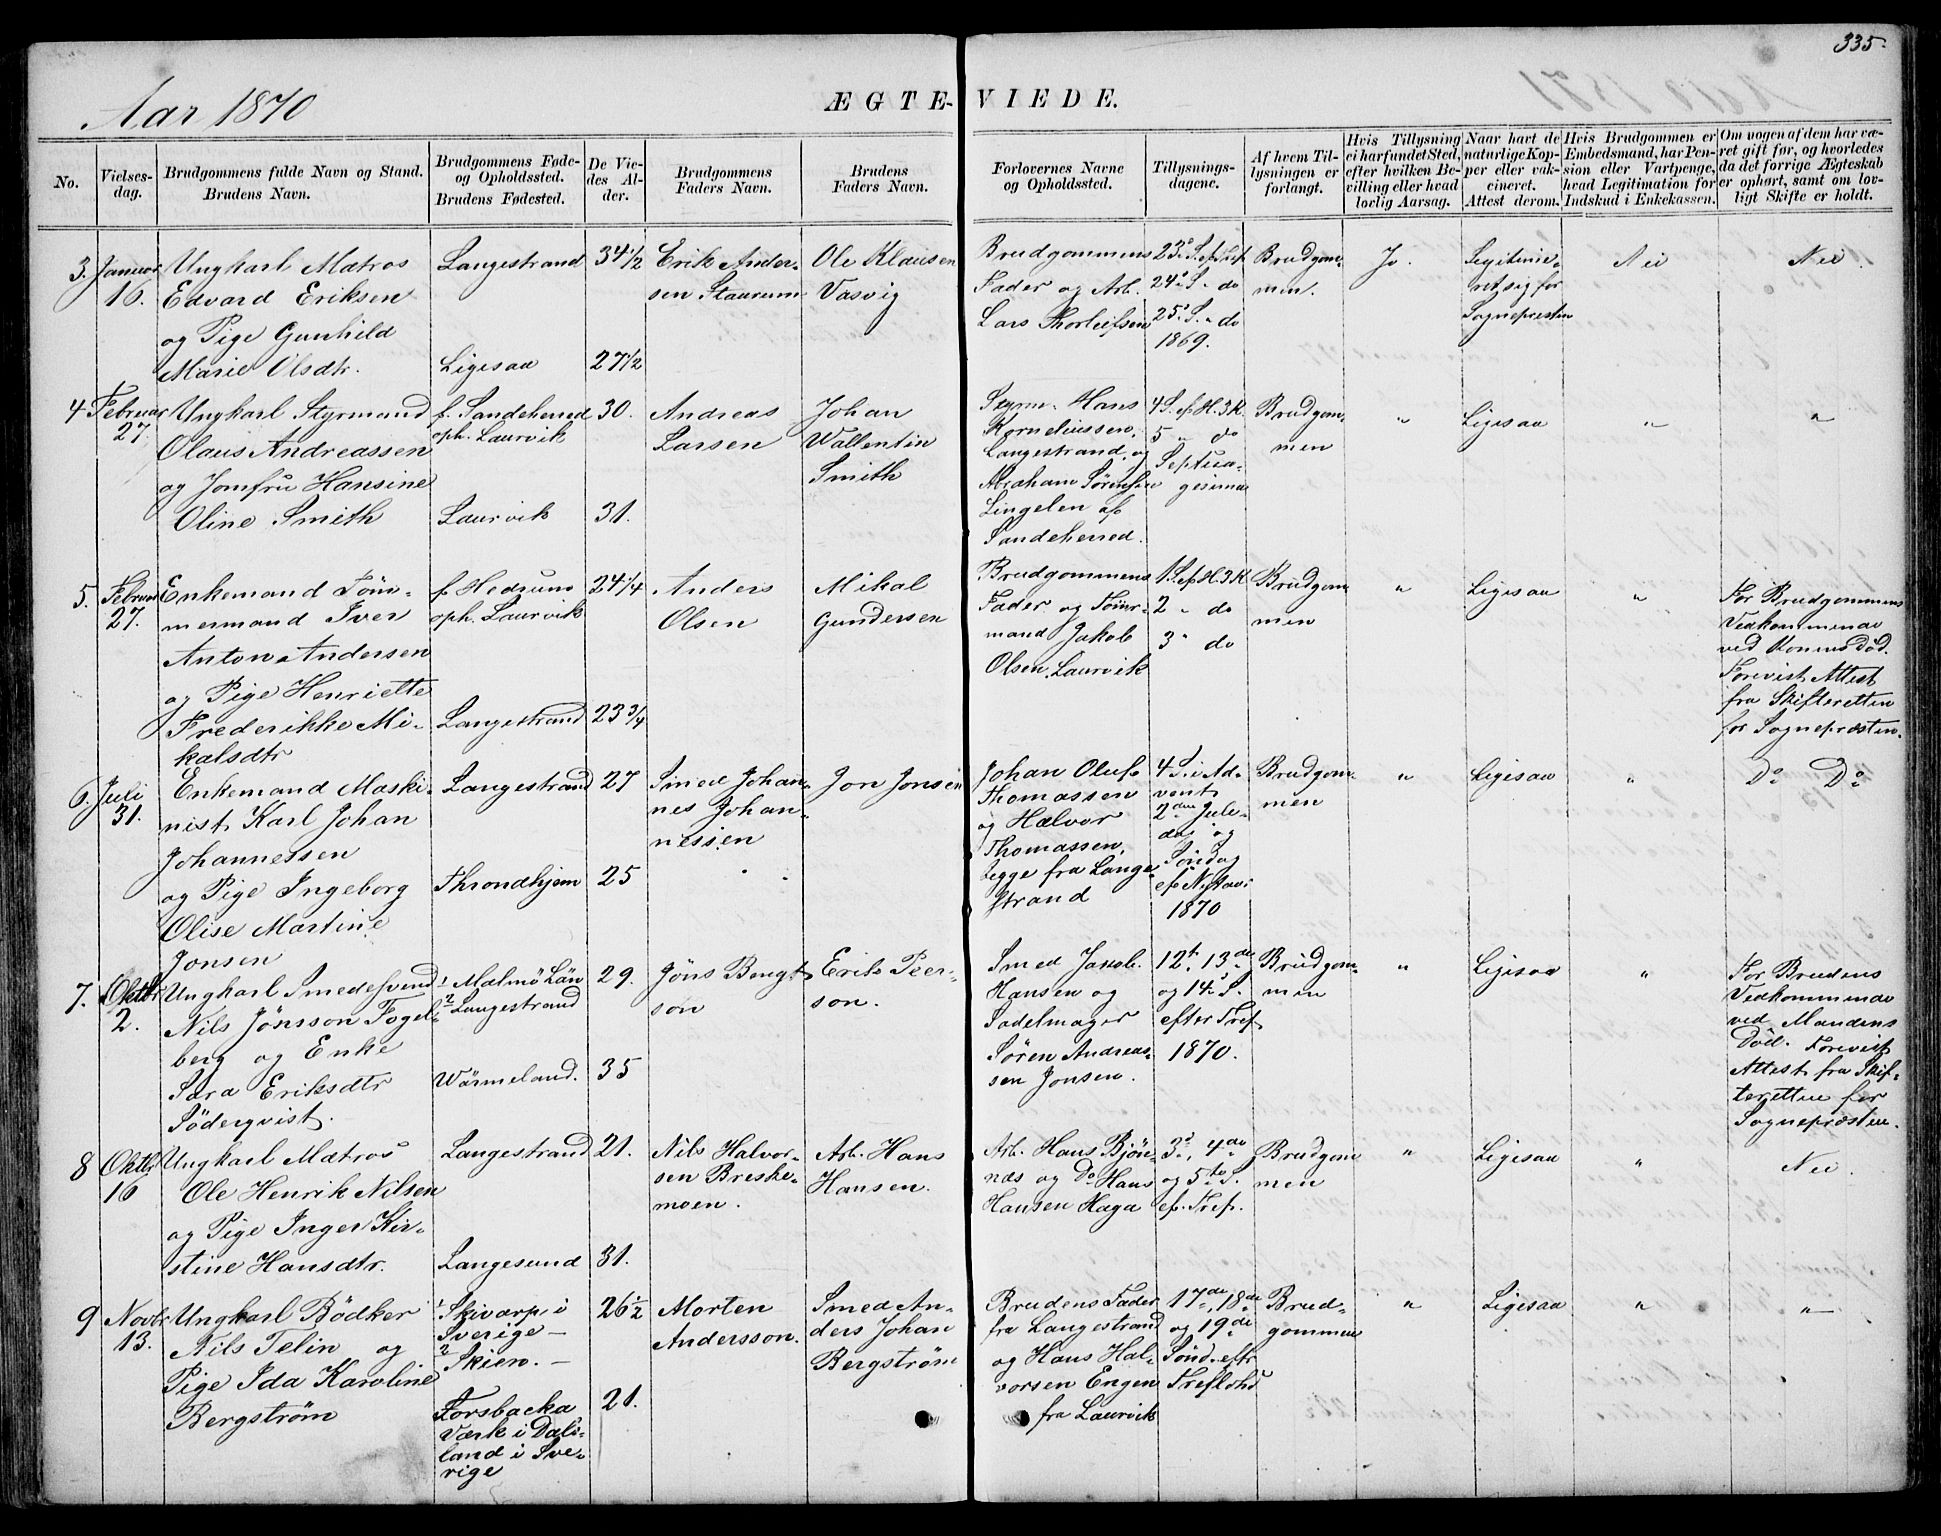 335.
Aar 1870
ÆGTE-VIEDE.
No.
Vielses-
dag.
Brudgommens fulde Navn og Stand.
Brudens Navn.
Brudgommens Føde-
og Opholdssted.
Brudens Fødested.
De Vie-
des Al-
der.
Brudgommens
Faders Navn.
Brudens
Faders Navn.
Forlovernes Navne
og Opholdssted.
Tillysnings-
dagene.
Af hvem Til-
lysningen er
forlangt.
Hvis Tillysning
ei har fundet Sted,
efter hvilken Be-
villing eller hvad
lovlig Aarsag.
Naar havt de
naturlige Kop-
per eller vak-
cineret.
Attest derom.
Hvis Brudgommen er
Embedsmand, har Pen-
sion eller Vartpenge,
hvad Legitimation for
Indskud i Enkekassen.
Om nogen af dem har væ-
ret gift før, og hvorledes
da det forrige Ægteskab
er ophørt, samt om lov-
ligt Skifte er holdt.
3.
Januar
16.
Ungkarl Matros
Edvard Eriksen
og Pige Gunhild
Marie Olsdtr.
Langestrand
Ligesaa
34 1/2
27 1/2
Erik Ander-
sen Staurum
Ole Klausen
Vasvig
Brudgommens
Fader og Arb.
Lars Thorleifsen
23. S. ef. Tref.
24. S. do
25. S. do
1869.
Brudgom-
men.
Jo.
Legitime-
ret sig for
Sognepresten
Nei
Nei.
4
Februar
27.
Ungkarl Styrmand
Olaus Andreassen
og Jomfru Hansine
Oline Smith
f. Sandeherred
oph. Laurvik
Laurvik
30.
31.
Andreas
Larsen
Johan
Wallentin
Smith
Styrm. Hans
Korneliussen,
Langestrand, og
Abraham Sørensen
Lingelen af
Sandeherred.
4 S. ef. H. 3 K.
5 " do
Septua-
gesima
Brudgom-
men
"
Ligesaa
"
"
5.
Februar
27.
Enkemand Töm-
mermand Iver
Anton Andersen
og Pige Henriette
Frederikke Mi-
kalsdtr
f. Hedrum
oph. Laurvik
Langestrand
24 1/4
23 3/4
Anders
Olsen
Mikal
Gundersen
Brudgommens
Fader og Tömr-
mand Jakob
Olsen, Laurvik
1 S. ef. H. 3 K.
2 " do
3 " do
Brudgom-
men
"
Ligesaa
"
For Brudgommens
Vedkommende
ved Konens Död.
Forevist Attest
fra Skifteretten
for Sognepræsten.
6.
Juli
31.
Enkemand Maski-
nist Karl Johan
Johannessen
og Pige Ingeborg
Olise Martine
Jonsen
Langestrand
Throndhjem
27
25
Smed Johan-
nes Johan-
nessen
Jon Jonsen
Johan Oluf
Thomassen
og Halvor
Thomassen,
begge fra Lange-
strand
4 S. i Ad-
vent
2den Jule-
dag og
Söndag
ef. Nytaar
1870
Brudgom-
men
"
Ligesaa
"
Do Do
7.
Oktbr
2.
Ungkarl Smedesvend
Nils Jönsson Fogel-
berg og Enke
Sara Eriksdtr
Söderqvist.
1 Malmö Län
2 Langestrand
Wärmeland.
29.
35
Jöns Bengt
son
Erik Peer-
son.
Smed Jakob
Hansen og
Sadelmager
Sören Andreas-
sen Jonsen.
12te, 13de
og 14. S.
efter Tref
1870.
Brudgom-
men
"
Ligesaa
"
For Brudens
Vedkommende
ved Mandens
Död. Forevist
Attest fra Skif-
teretten for
Sognepræsten.
8
Oktbr
16
Ungkarl Matros
Ole Henrik Nilsen
og Pige Inger Kir-
stine Hansdtr.
Langestrand
Langesund
21.
31.
Nils Halvor-
sen Breske-
moen.
Arb. Hans
Hansen.
Arb. Hans Björe-
næs og Do Hans
Hansen Haga
3de, 4de
og 5te S.
ef. Tref.
Brudgom
men
"
Ligesaa
"
Nei.
9
Novbr
13.
Ungkarl Bödker
Nils Telin og
Pige Ida Karoline
Bergström
1 Skivarp i
Sverige-
2 Skien.-
Forsbacka
Værk i Dals-
land i Sve-
rige
26 1/2
21.
Morten
Andersson.
Smed An-
ders Johan
Bergström
Brudens Fader
fra Langestrand
og Hans Hal-
vorsen Engen
fra Laurvik
17de, 18de
og 19de
Sönd. eftr
Trefloh
Brud-
gommen
"
Ligesaa
"
"